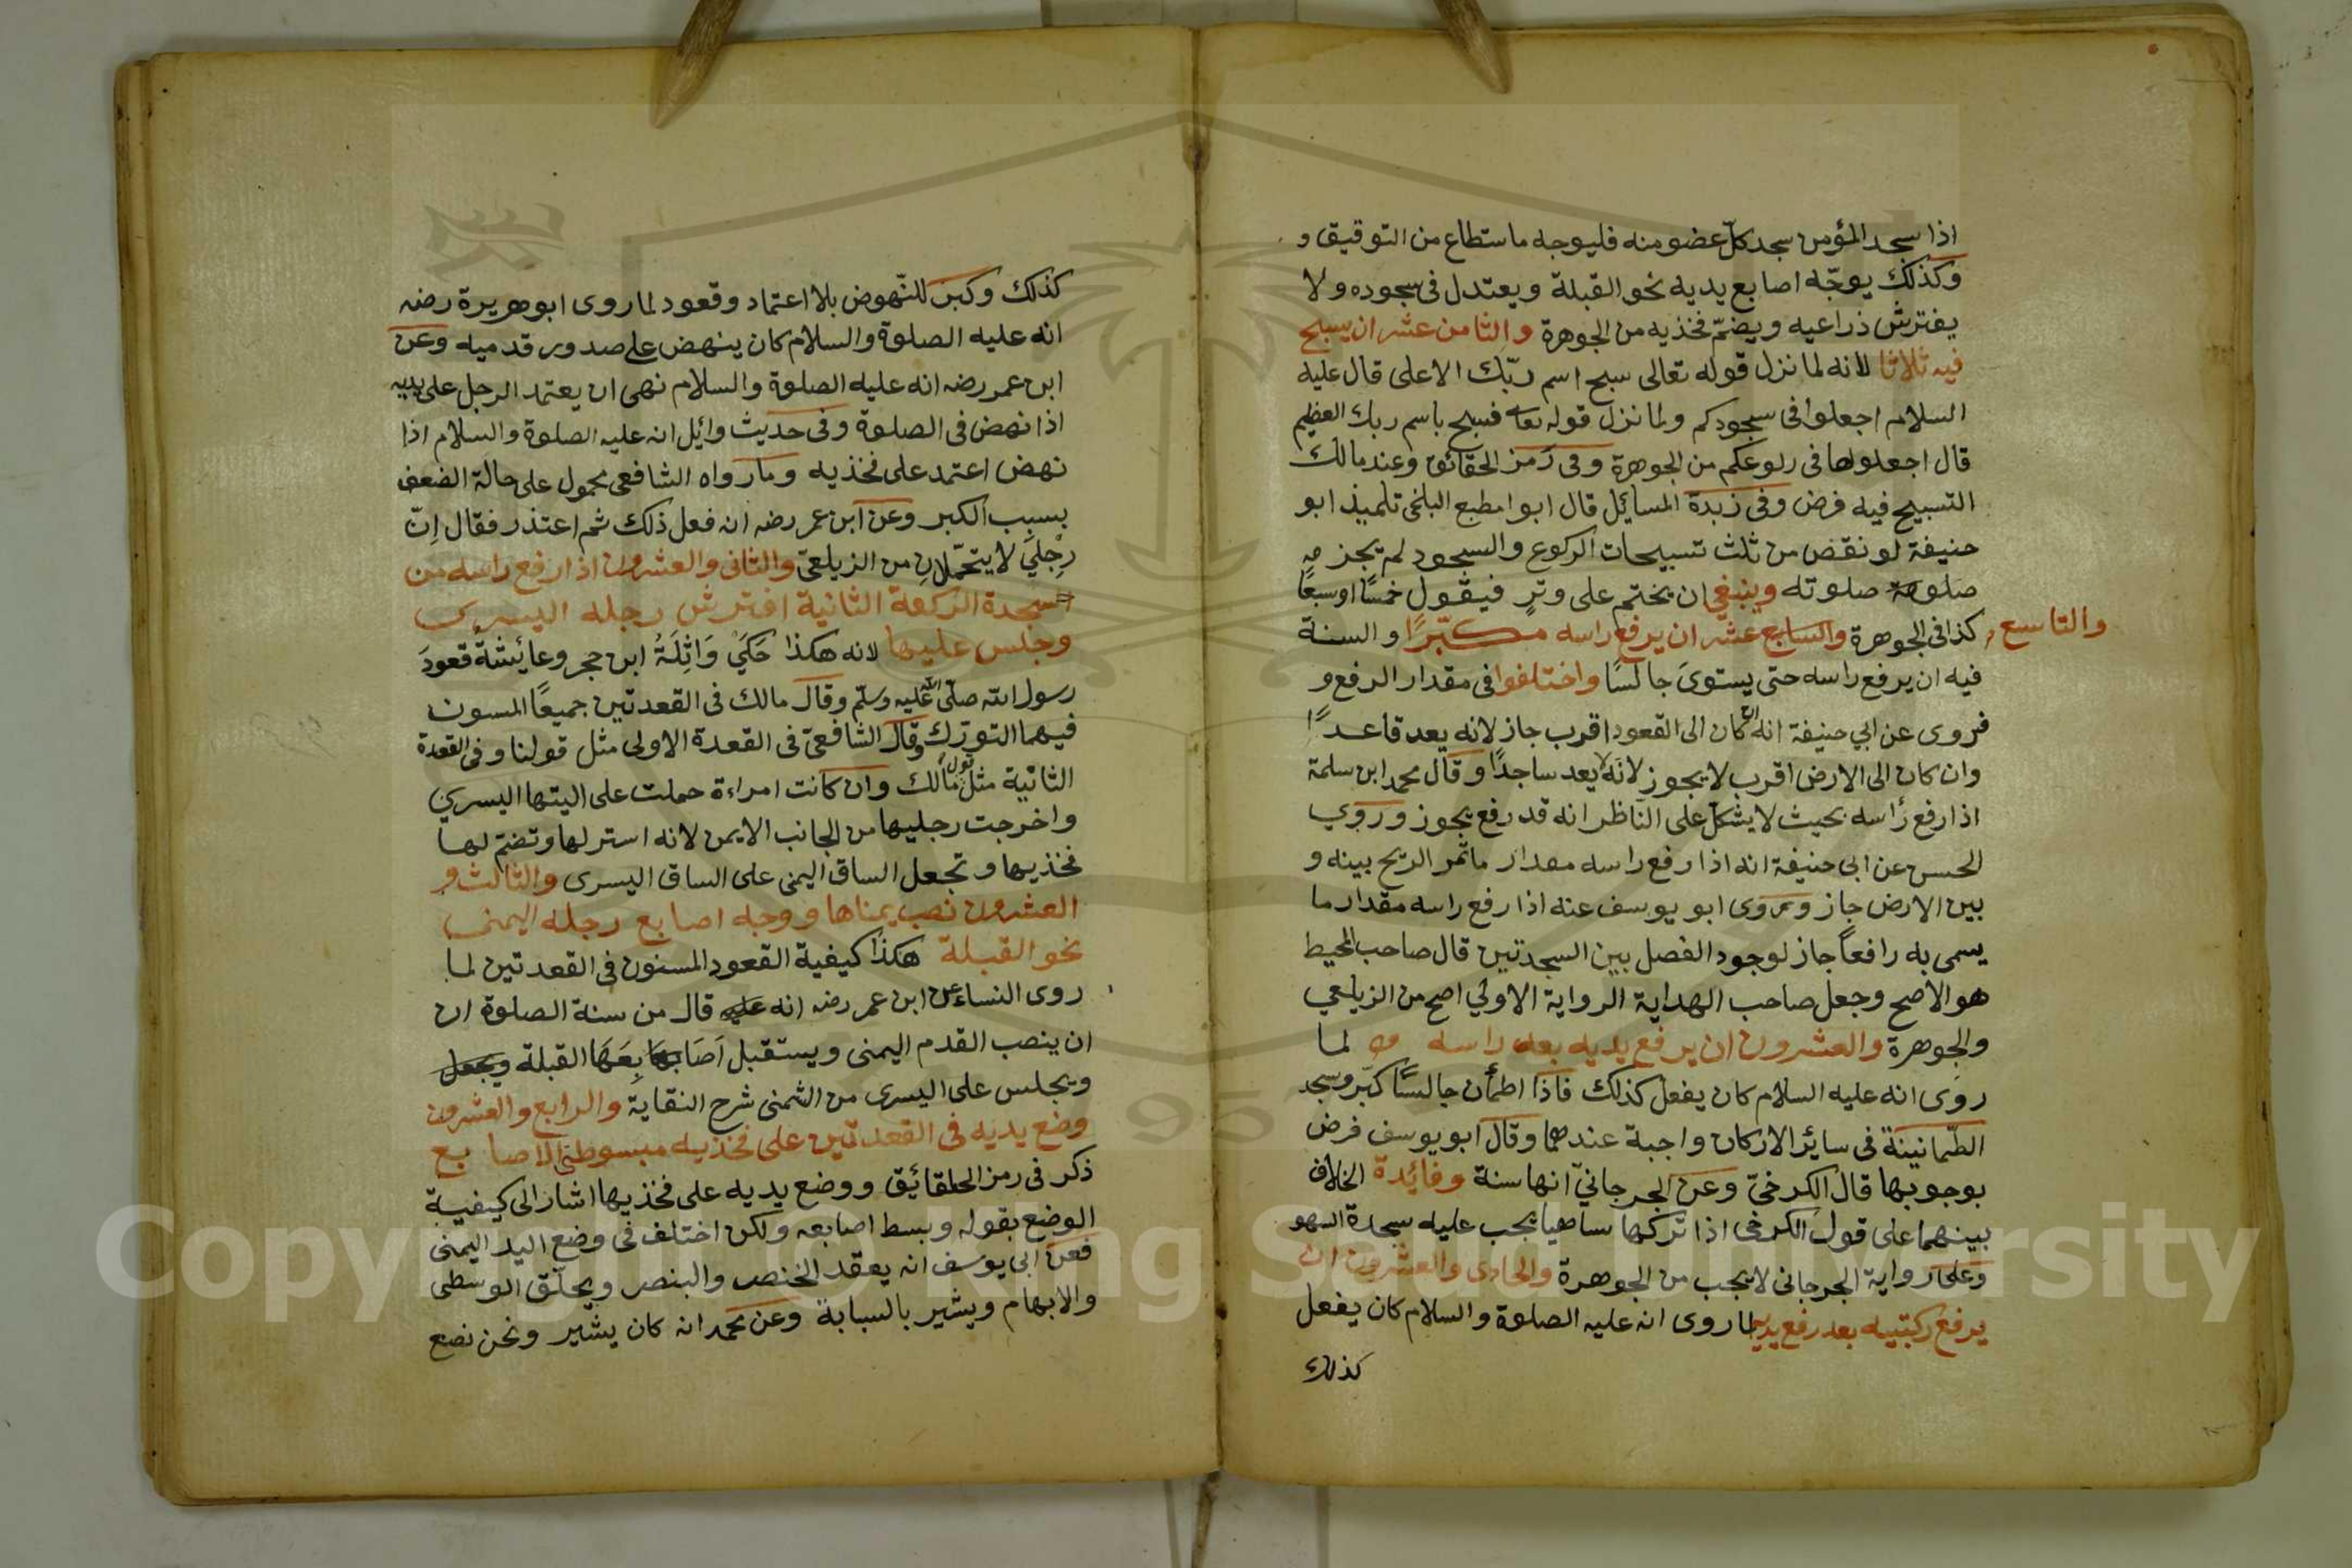 اذا سجد المؤمن سجد كلّ عضو منه فليوجه ما ستطاع من التوقيق و
وكذلك يوجّه اصابع يديه نحو القبلة ويعتدل فى سجوده ولا
يفترش ذراعيه ويضمّ فخذيه من الجوهرة والثامن عشر ان يسبح
فيه ثلاثا لانه لما نزل قوله تعالى سبح اسم ربّك الاعلى قال عليه
السلام اجعلوا فى سجودكم ولما نزل قوله تعا فسبح باسم ربك العظيم
قال اجعلوها فى ركوعكم من الجوهرة وفى رمز الحقائق وعند مالك
التسبيح فيه فرض وفى زبدة المسائل قال ابوا مطبع البلخى تلميذ ابو
حنيفة لو نقض من ثلث تسبيحات الركوع والسجود لم يجز
صلوته وينبغي ان يختم على وترٍ فيقول خمسًا او سبعًا
والتاسع
كذا فى الجوهرة والسابع عشر ان يرفع راسه مكبّرًا والسنة
فيه ان يرفع راسه حتى يستوىَ جالسًا واختلفوا فى مقدار الرفع و
فروى عن ابي حنيفة انه ان كان الى القعود اقرب جاز لانه يعد قاعدًا
وان كان الى الارض اقرب لا يجوز لانه لا يعد ساجدًا وقال محمد ابن سلمة
اذا رفع رأسه بحيث لا يشكل على النّاظر انه قد رفع يجوز وروي
الحسن عن ابى حنيفة انه اذا رفع راسه مقدار ما تمر الريح بينه و
بين الارض جاز وروى ابو يوسف عنه اذا رفع راسه مقدار ما
يسمى به رافعاً جاز لوجود الفصل بين السجدتين قال صاحب المحيط
هو الاصح وجعل صاحب الهداية الرواية الاولي اصح من الزيلعي
والجوهرة والعشرون ان يرفع يديه بعد راسه لما
روى انه عليه السلام كان يفعل كذلك فاذا اطمأن جالسًا كبّر وسجد
الطّمانينة فى سائر الاركان واجبة عندهما وقال ابو يوسف فرض
بوجوبها قال الكرخىّ وعن الجرجانيّ انها سنة وفائدة الخلاف
بينهما على قول الكرخى اذا تركها ساهيا يجب عليه سجدة السهو
وعلى رواية الجرجانى لا يجب من الجوهرة والحادى والعشرون ان
يرفع ركبتيه بعد رفع يديه لما روى انه عليه الصلوة والسلام كان يفعل
كذلك
كذلك وكبر للنّهوض بلا اعتماد وقعود لما روى ابو هريرة رضه
انه عليه الصلوة والسلام كان ينهض على صدور قدميه وعن
ابن عمر رضه انه عليه الصلوة والسلام نهى ان يعتمد الرجل على يديه
اذا نهض فى الصلوة وفى حديث وائل انه عليه الصلوة والسلام اذا
نهض اعتمد على فخذيه وما رواه الشافعى محمول على حالة الضعف
بسبب الكبر وعن ابن عمر رضه انه فعل ذلك ثم اعتذر فقال اِنّ
رِجليَ لا يتحمّلانِ من الزيلعىّ والثانى والعشرون اذا رفع راسه من
سجدة الركعة الثانية افترش رجله اليسرى
وجلس عليها لانه هكذا حَكَيْ وَاثِلَةُ ابن حجر وعائيشةُ قعودَ
رسول الله صلّى الله عليه وسلّم وقال مالك فى القعدتين جميعًا المسون
فيهما التورّك وقال الشافعىّ فى القعدة الاولى مثل قولنا وفى القعدة
الثانية مثل قول مالك وان كانت امراءة جملت على اليتها اليسري
واخرجت رجليها من الجانب الايمن لانه استر لها وتضمّ لها
فخذيها وتجعل الساق اليمنى على الساق اليسرى والثالث و
العشرون نصب يمناها ووجه اصابع رجله اليمنى
نحو القبلة هكذا كيفية القعود المسنون فى القعدتين لما
روى النساء عن ابن عمر رضه انه قال من سنة الصلوة ان
ان ينصب القدم اليمنى ويستقبل اَصَابِعَهَا القبلة ويجعل
ويجلس على اليسرى من الشمنى شرح النقاية والرابع والعشرون
وضع يديه فى القعدتين على فخذيه مبسوطتى الاصابع
ذكر فى رمز الحقائيق ووضع يديه على فخذيها اشار الى كيفية
الوضع بقوله وبسط اصابعه ولكن اختلف فى وضع اليد اليمنى
فعن ابى يوسف انه يعقد الخنصر والبنصر ويحلّق الوسطى
والابهام ويشير بالسبابة وعن محمد انه كان يشير ونحن نصع
Copyright © King Saud University